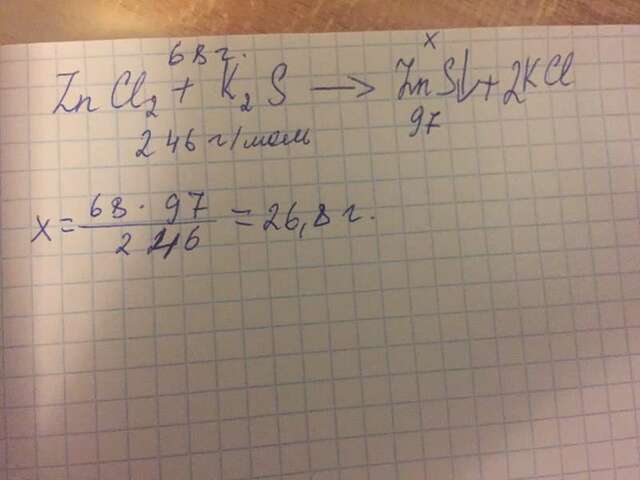 68г. x
ZnCl₂ + K₂S ⟶ ZnS↓ + 2KCl
246 г/моль 97
x = 68 · 97 / 246 = 26,8 г.